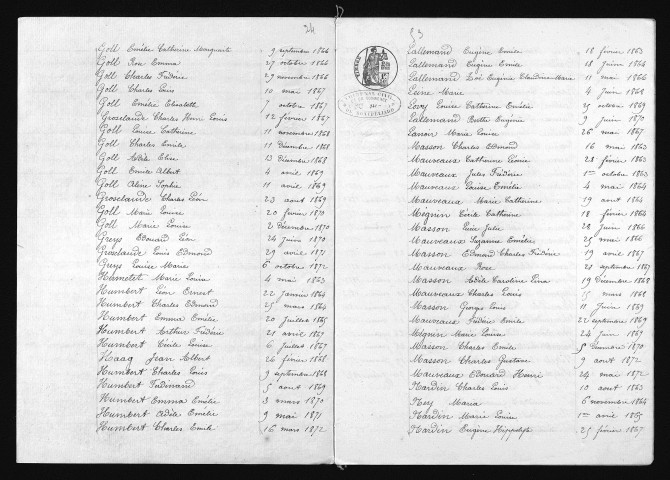 24
Goll Emélie Catherine Marguerite 9 septembre 1866
Goll Rose Emma 27 octobre 1866
Goll Charles Frédéric 29 novembre 1866
Goll Charles Louis 10 mai 1867
Goll Emélie Elisabeth 7 octobre 1867
Groselaude Charles Henri Louis 12 février 1867
Goll Louise Catherine 11 novembre 1868
Goll Charles Emile 11 Décembre 1868
Goll Adèle Elise 13 Décembre 1868
Goll Emile Albert 4 avril 1869
Goll Aline Sophie 11 avril 1869
Groselaude Charles Léon 23 août 1869
Goll Marie Louise 20 février 1870
Goll Marie Louise 2 Décembre 1870
Greys Edouard Léon 24 juin 1870
Groselaude Louis Edmond 29 avril 1871
Greys Louise Marie 6 octobre 1872
Hamelet Marie Louisa 4 mai 1863
Humbert Léon Ernest 22 janvier 1864
Humbert Charles Edmond 25 mars 1864
Humbert Emma Emélie 20 juillet 1865
Humbert Arthur Frédéric 21 avril 1867
Humbert Cécile Louise 6 juillet 1867
Haag Jean Albert 26 février 1868
Humbert Charles Louis 9 septembre 1868
Humbert Ferdinand 5 août 1869
Humbert Emma Emélie 3 mars 1870
Humbert Adèle Emélie 9 mai 1871
Humbert Charles Emile 16 mars 1872
Lallemand Eugène Emile 18 février 1863
Lallemand Eugène Emile 18 juin 1864
Lallemand Zoé Eugénie Claudine Marie 11 mai 1866
Marie 4 juin 1869
Lovy Louise Catherine Emélie 25 octobre 1869
Lallemand Berthe Eugénie 9 juin 1870
Lanoir Marie Louise 26 mai 1867
Masson Charles Edmond 16 mai 1863
Mauveaux Catherine Léonie 28 février 1863
Mauveaux Jules Frédéric 1er octobre 1863
Mauveaux Louise Emélie 4 mai 1864
Mauveaux Marie Catherine 19 août 1864
Megnin Cécile Catherine 18 février 1864
Masson Lucie Julie 28 juin 1866
Mauveaux Suzanne Emélie 25 mai 1866
Masson Edouard Charles Frédéric 19 avril 1867
Mauveaux Rose 21 septembre 1867
Masson Adèle Caroline Lina 19 Décembre 1868
Mauveaux Charles Louis 5 mars 1868
Masson Georges Louis 11 juin 1869
Mauveaux Frédéric Emile 22 septembre 1869
Megnin Marie Louise 24 juin 1867
Masson Charles Emile 5 Décembre 1870
Masson Charles Gustave 9 août 1872
Mauveaux Edouard Henri 24 mai 1872
Nardin Charles Louis 10 août 1863
Ney Maria 6 novembre 1864
Nardin Marie Louise 1er avril 1865
Nardin Eugène Hippolyte 25 février 1867